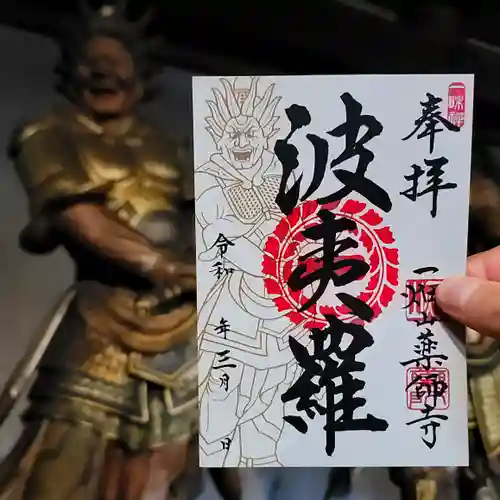 奉拝
一畑山薬師寺
波夷羅
令和 年三月 日